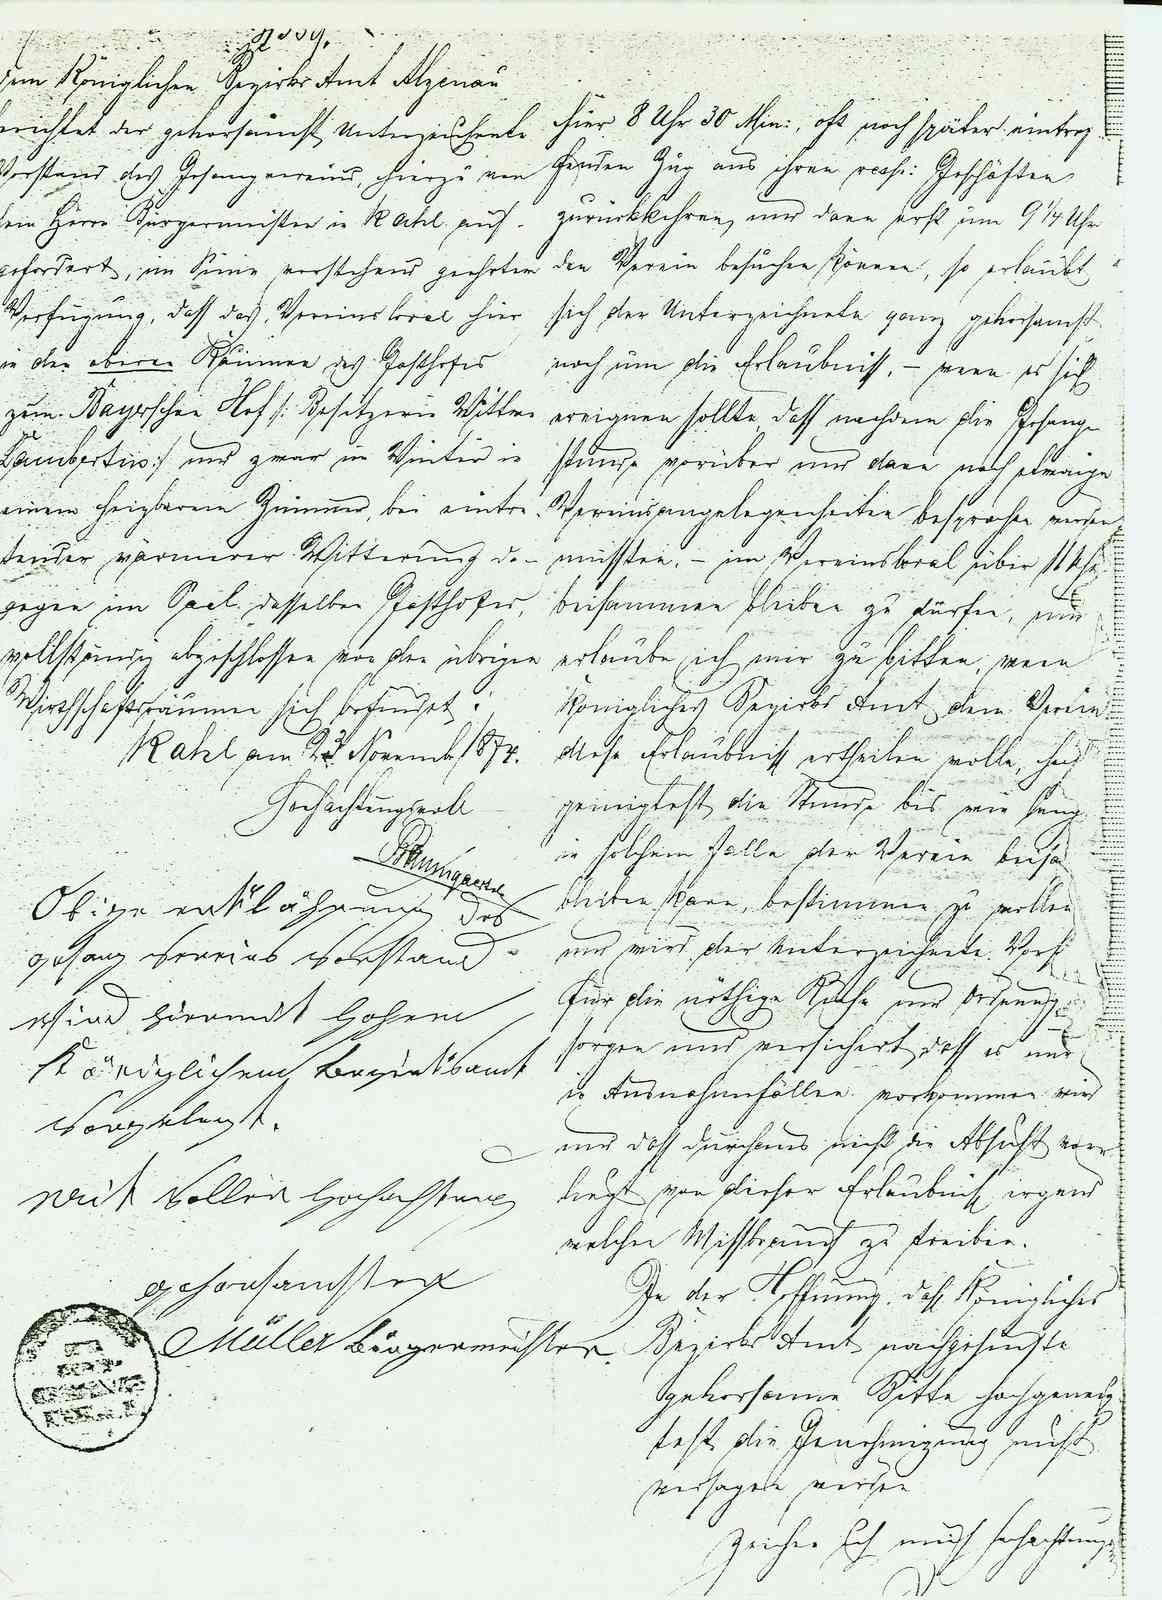 dem Königlichen Bezirks Amt Alzenau
berichtet der gehorsamst Unterzeichnete
Vorstand des Gesangvereins, hierzu von
dem Herrn Bürgermeister in Kahl auf-
gefordert, im Sinne vorstehend geehrten
Verfügung, dass das Vereinslocal hier
in den oberen Räumen des Gasthofes
zum Bayerschen Hof /: Besitzerin Wittwe
Lambertus :/ und zwar im Winter in
einem heizbaren Zimmer, bei eintre-
tender wärmerer Witterung da-
gegen im Saal desselben Gasthofes,
vollständig abgeschlossen von den übrigen
Wirthschaftsräumen sich befindet.
Kahl am 23 Novemb. 1874.
Hochachtungsvoll
Baumgaertel
Obige erklährung des
gesang Vereins Vorstand
wird hiermit hohem
Königlichem Bezirksamt
Vorgelegt.
mit voller Hochachtung
gehorsamster
Müller Bürgermeister.
hier 8 Uhr 30 Min:, oft noch später eintref-
fenden Zug aus ihren resp: Geschäften
zurückkehren, und dann erst um 9 1/4 Uhr
den Verein besuchen können, so erlaubt
sich der Unterzeichnete ganz gehorsamst
noch um die Erlaubniss, – wenn es sich
ereignen sollte, dass nachdem die Gesang-
stunde vorüber und dann noch etwaige
Vereinsangelegenheiten besprochen werden
müssten, – im Vereinslocal über 11 Uhr
beisammen bleiben zu dürfen, und
erlaube ich mir zu bitten, wenn
Königliches Bezirks Amt dem Verein
diese Erlaubniss ertheilen wolle, hoch
geneigtest die Stunde bis wie lang
in solchem Falle der Verein beisa
bleiben kann, bestimmen zu wollen
und wird der Unterzeichnete Vorst
für die nöthige Ruhe und Ordnung
sorgen und versichert, dass es nur
in Ausnahmsfällen vorkommen wird
und dass durchaus nicht die Absicht vor-
liegt von dieser Erlaubniss irgend
welchen Missbrauch zu treiben.
In der Hoffnung, dass Königliches
Bezirks Amt nachgesuchte
gehorsame Bitte hochgeneig-
test die Genehmigung nicht
versagen werden
zeichne ich mich hochachtungs